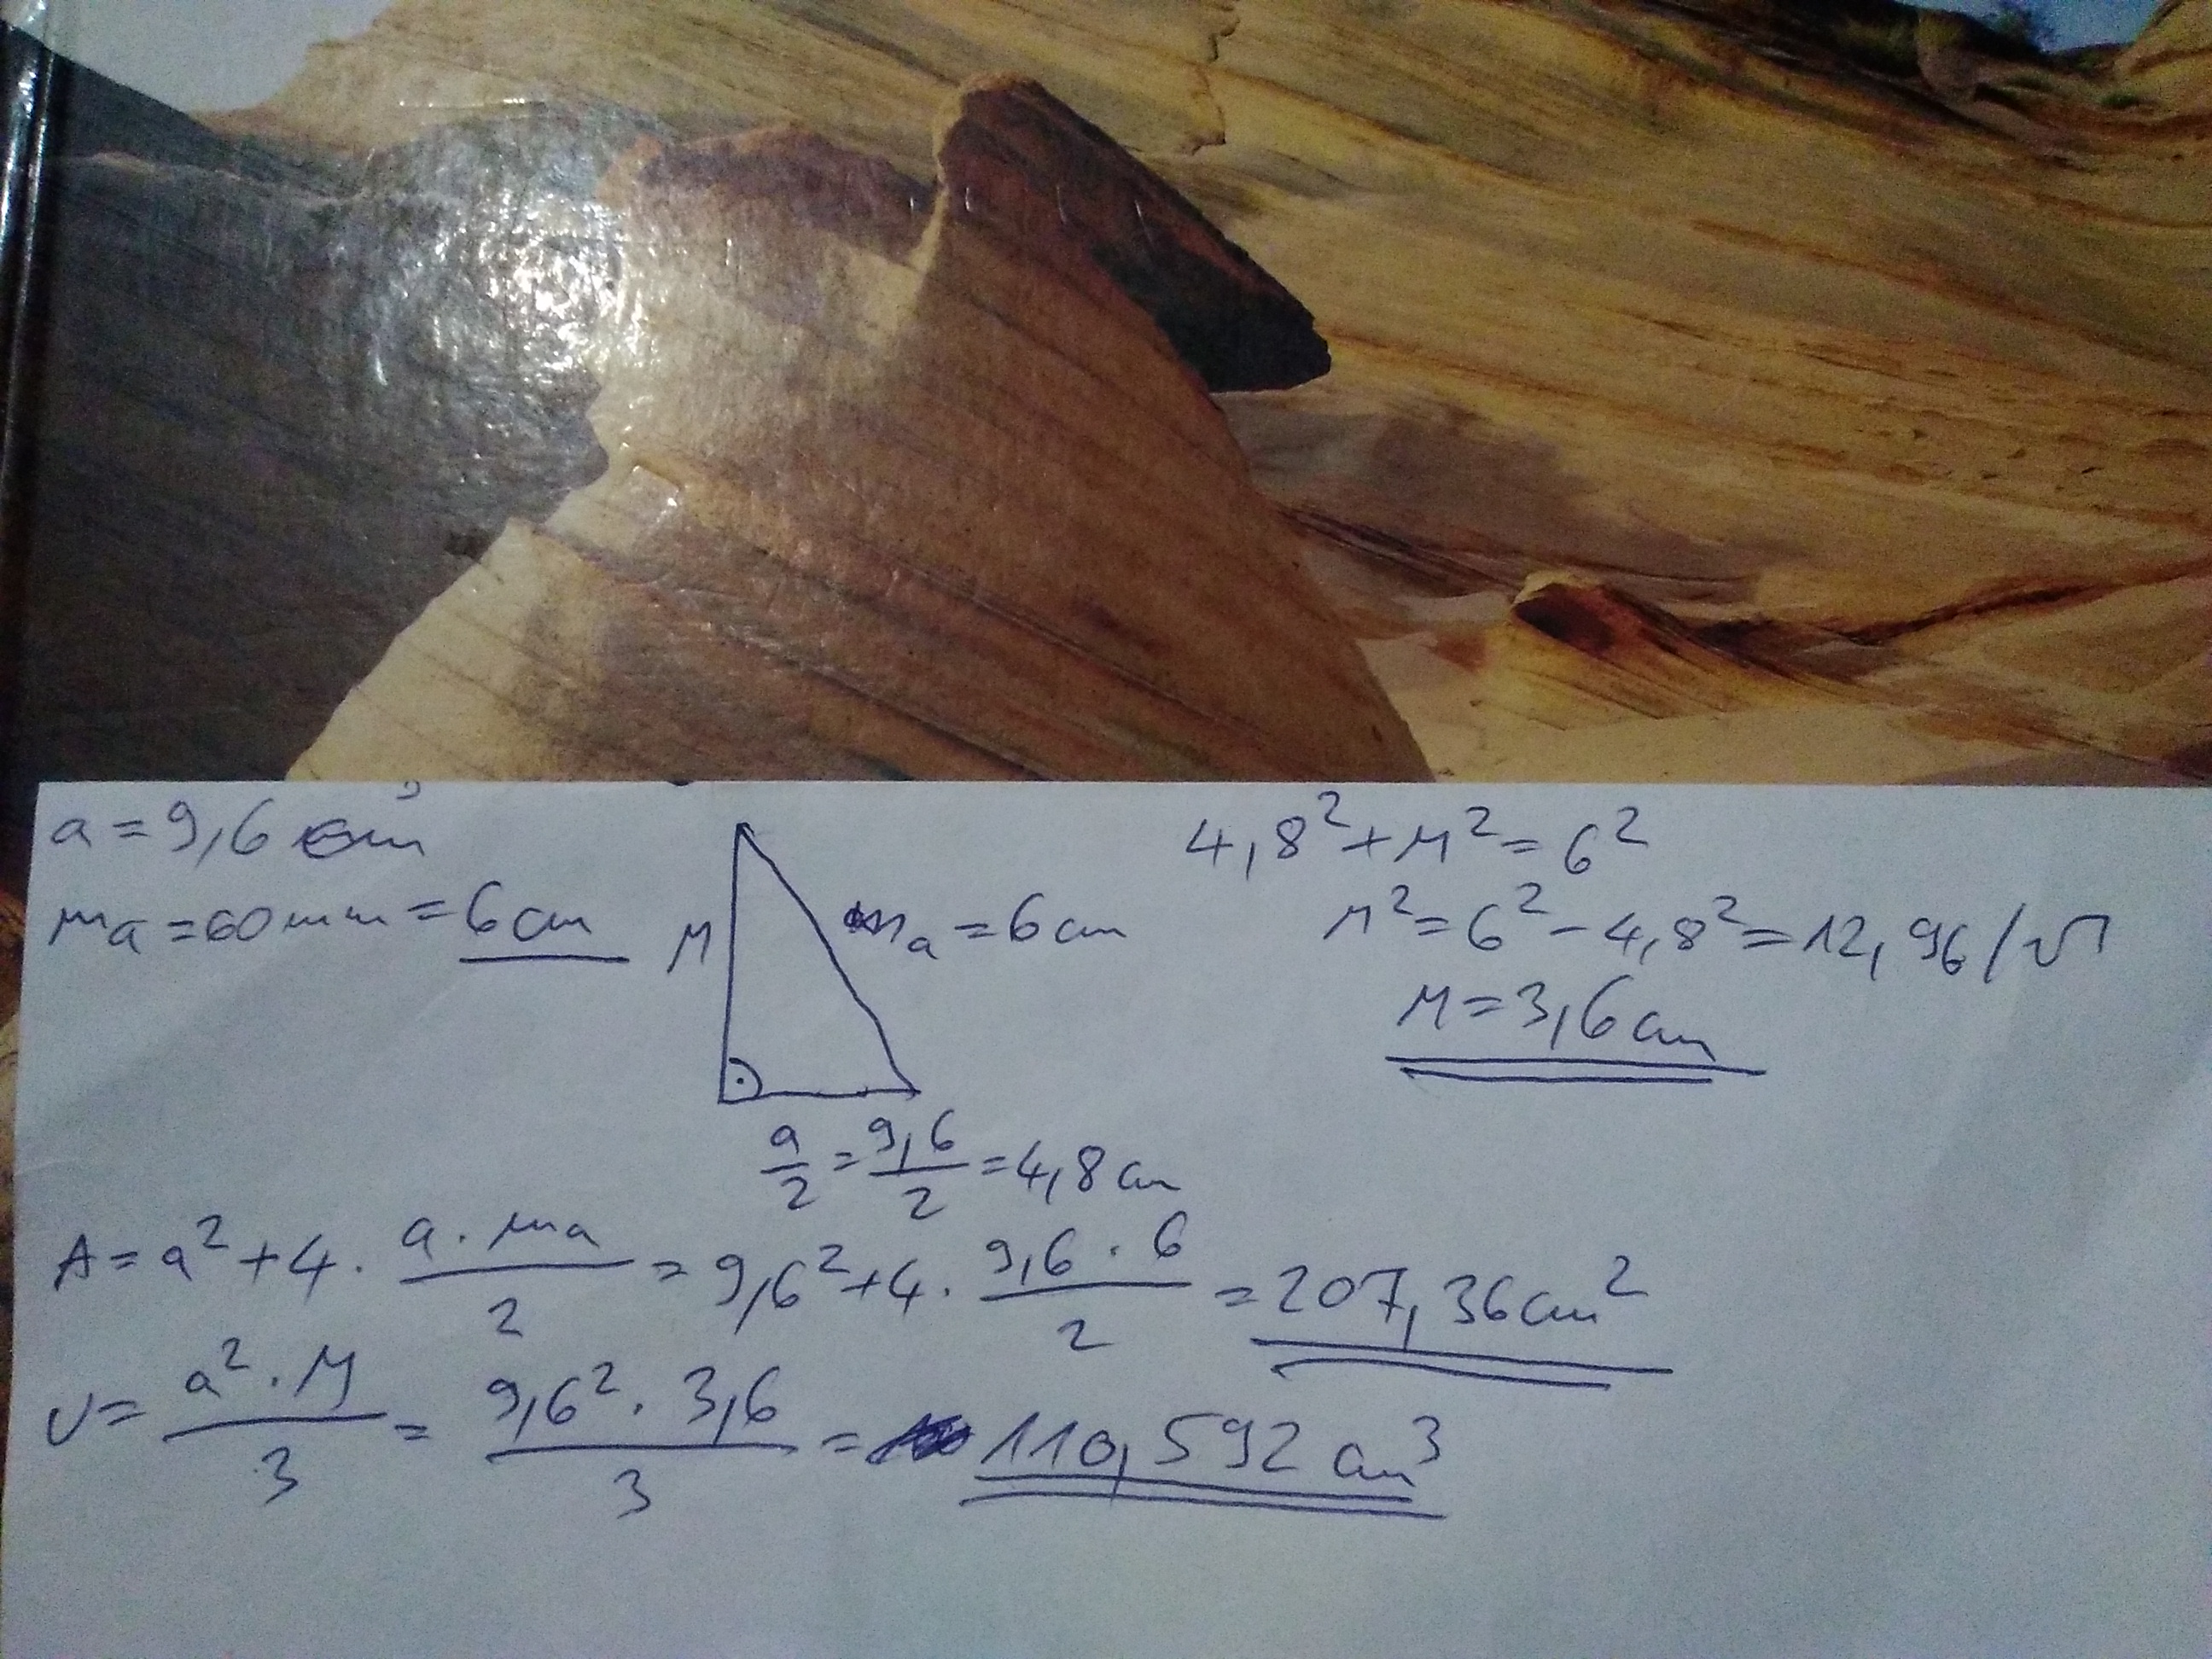 a = 9,6 cm
ma = 60mm = 6cm
M
ma = 6cm
a/2 = 9,6/2 = 4,8cm
4,8² + M² = 6²
M² = 6² - 4,8² = 12,96 /√
M = 3,6cm
A = a² + 4 · a · ma / 2 = 9,6² + 4 · 9,6 · 6 / 2 = 207,36cm²
V = a² · M / 3 = 9,6² · 3,6 / 3 = 110,592 cm³